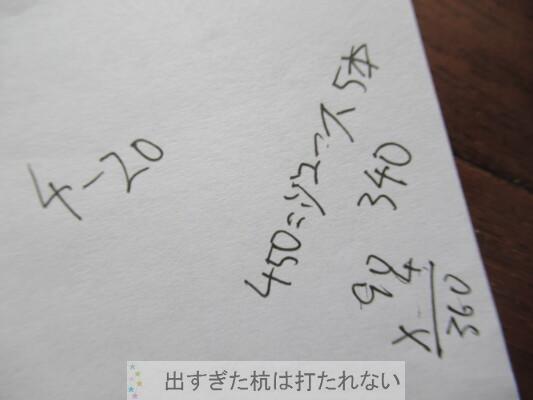 4-20
450=ジュース 5本
340
90
× 4
360
出すぎた杭は打たれない